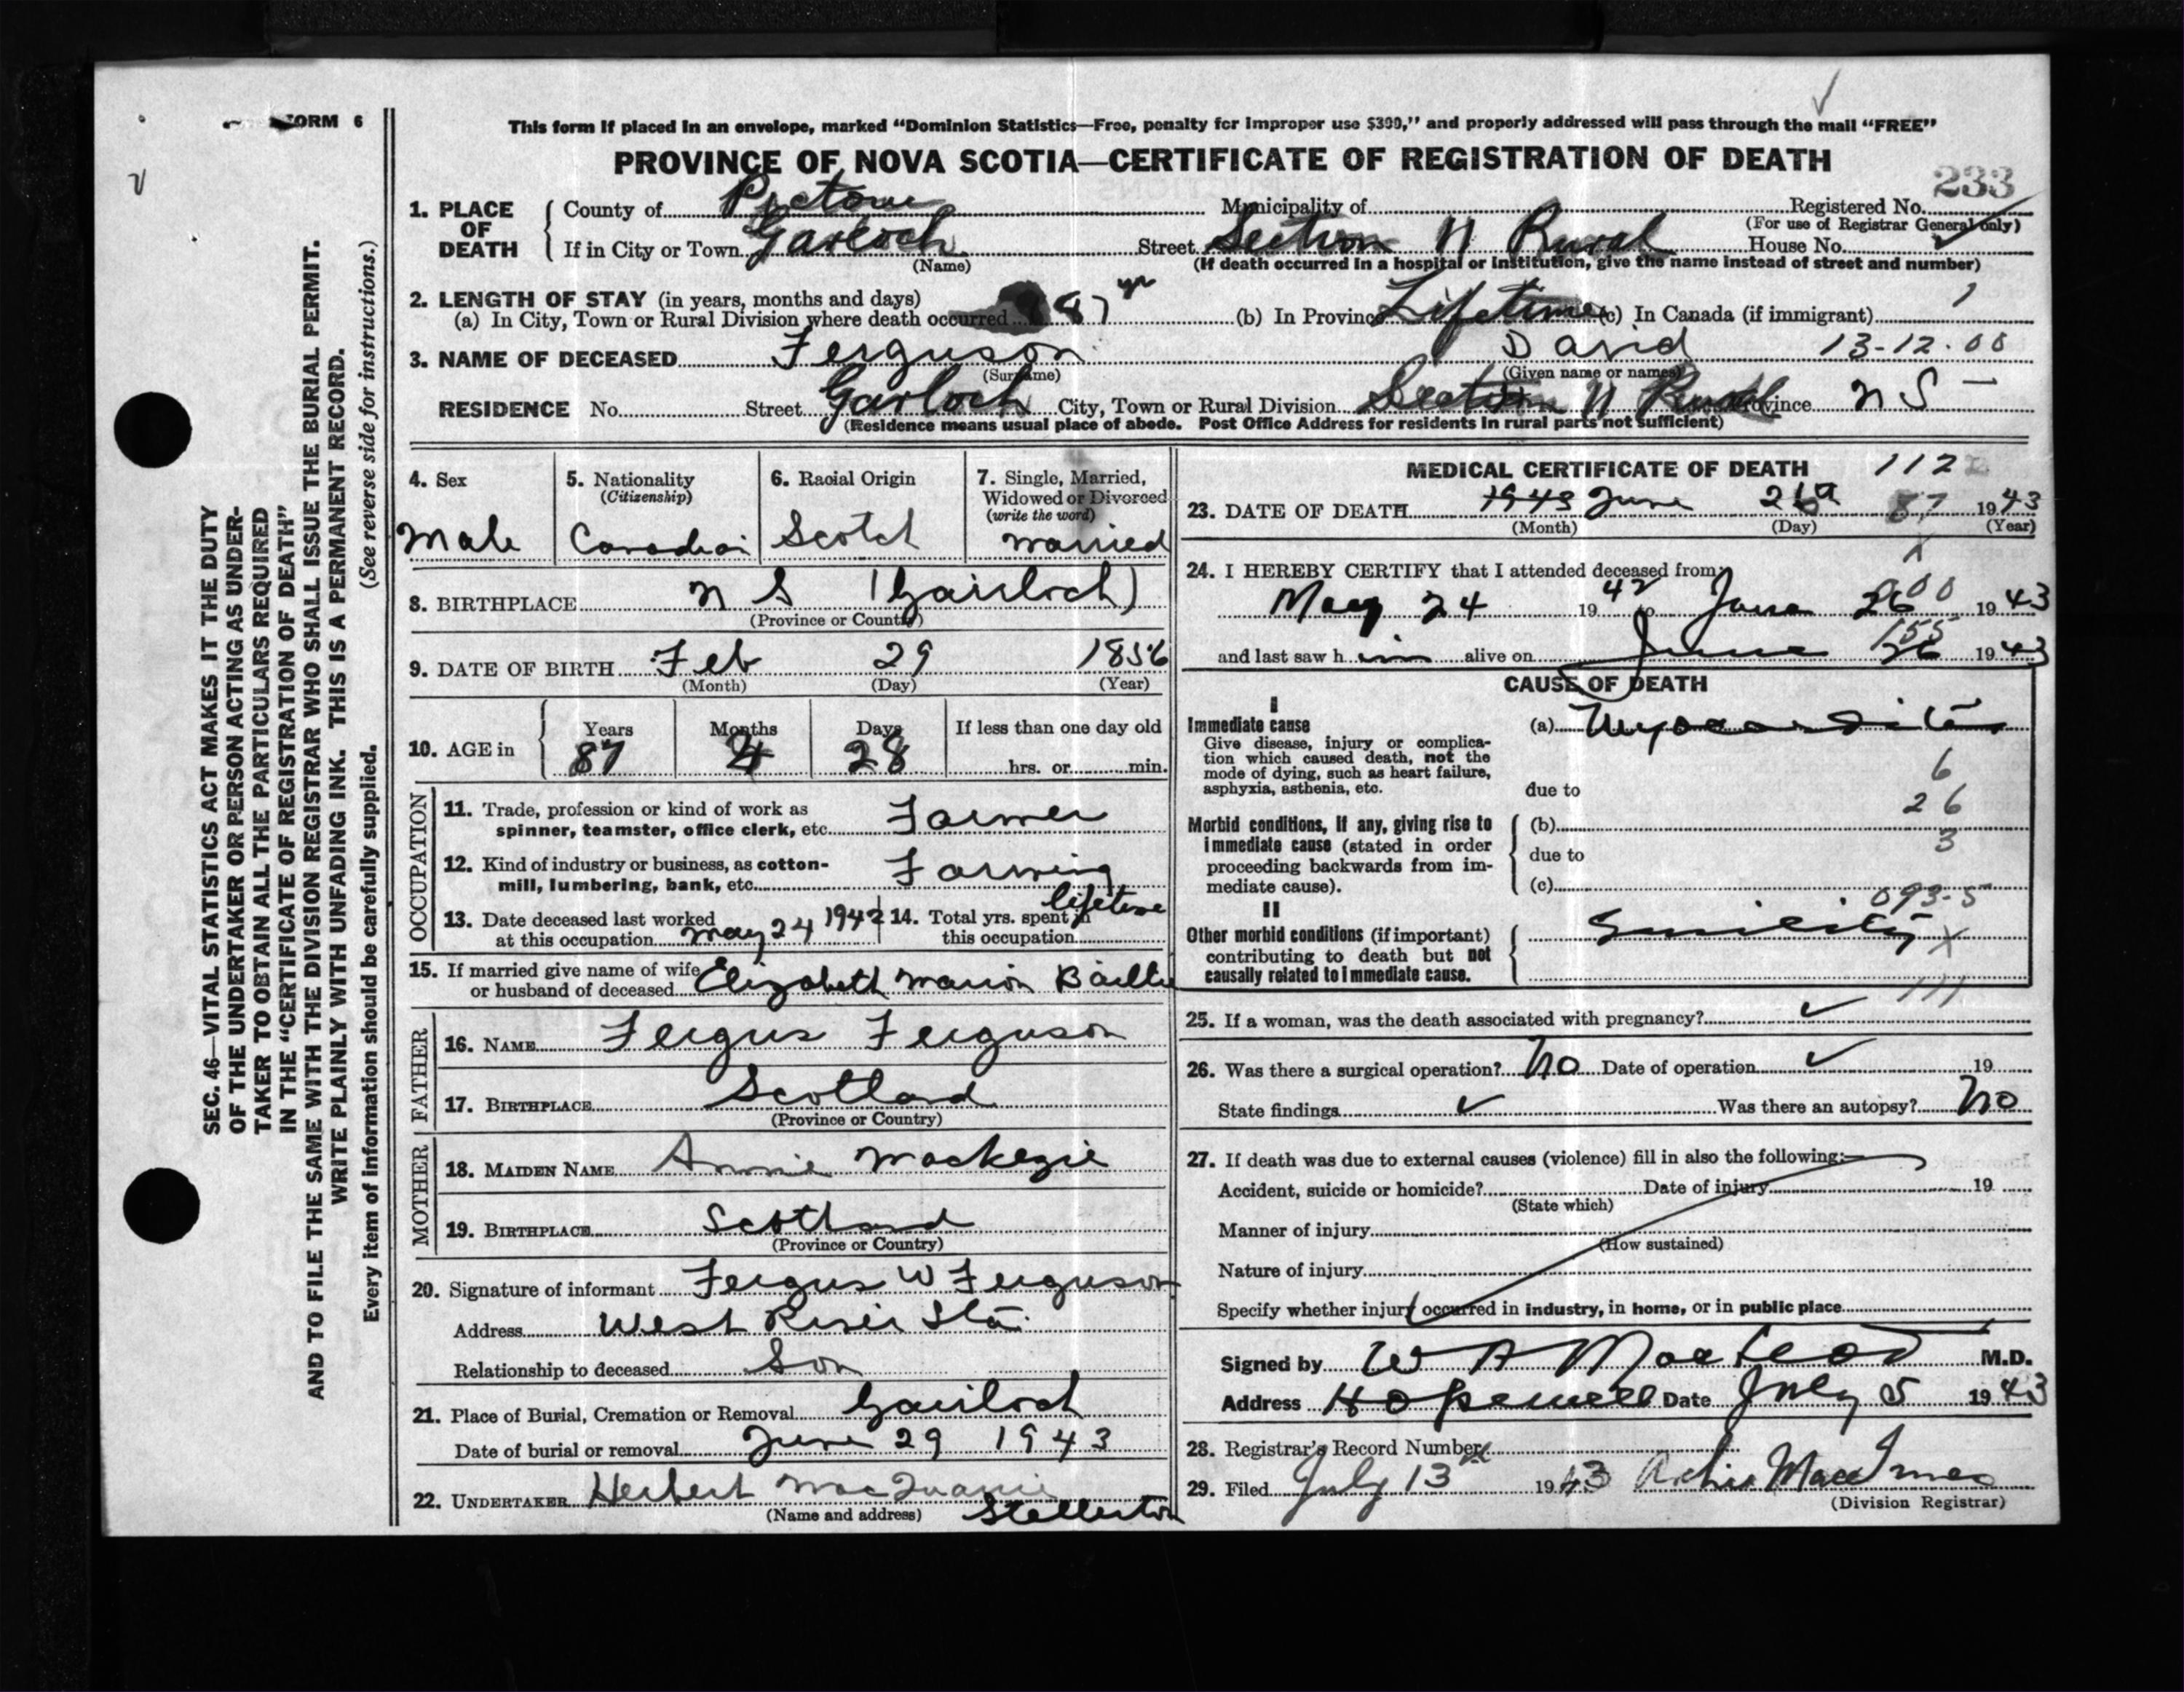 FORM 6
This form if placed in an envelope, marked "Dominion Statistics—Free, penalty for improper use $300," and properly addressed will pass through the mail "FREE"
PROVINCE OF NOVA SCOTIA—CERTIFICATE OF REGISTRATION OF DEATH
233
1. PLACE OF DEATH County of Pictou Municipality of Registered No.
(For use of Registrar General only)
If in City or Town Garloch Street Section N Rural House No.
(Name) (If death occurred in a hospital or institution, give the name instead of street and number)
2. LENGTH OF STAY (in years, months and days)
(a) In City, Town or Rural Division where death occurred 87 yr (b) In Province Lifetime (c) In Canada (if immigrant)
3. NAME OF DECEASED Ferguson David 13-12-00
(Surname) (Given name or names)
RESIDENCE No. Street Garloch City, Town or Rural Division Section N Rural Province N S
(Residence means usual place of abode. Post Office Address for residents in rural parts not sufficient)
4. Sex Male
5. Nationality (Citizenship) Canadian
6. Racial Origin Scotch
7. Single, Married, Widowed or Divorced (write the word) Married
8. BIRTHPLACE N S (Gairloch)
(Province or Country)
9. DATE OF BIRTH Feb 29 1856
(Month) (Day) (Year)
10. AGE in Years 87 Months 4 Days 28 If less than one day old
hrs. or min.
OCCUPATION
11. Trade, profession or kind of work as
spinner, teamster, office clerk, etc. Farmer
12. Kind of industry or business, as cotton-
mill, lumbering, bank, etc. Farming
13. Date deceased last worked
at this occupation May 24 1942
14. Total yrs. spent in
this occupation lifetime
15. If married give name of wife
or husband of deceased Elizabeth Marion Baillie
FATHER
16. NAME Fergus Ferguson
17. BIRTHPLACE Scotland
(Province or Country)
MOTHER
18. MAIDEN NAME Annie Mackezie
19. BIRTHPLACE Scotland
(Province or Country)
20. Signature of informant Fergus W Ferguson
Address West River Sta.
Relationship to deceased Son
21. Place of Burial, Cremation or Removal Gairloch
Date of burial or removal June 29 1943
22. UNDERTAKER Herbert MacQuarrie
(Name and address) Stellerton
MEDICAL CERTIFICATE OF DEATH 112
23. DATE OF DEATH 1943 June 26 87 1943
(Month) (Day) (Year)
24. I HEREBY CERTIFY that I attended deceased from
May 24 1942 to June 26 00 1943
155
and last saw him alive on June 26 1943
CAUSE OF DEATH
I
Immediate cause (a) Myocarditis
Give disease, injury or complica-
tion which caused death, not the
mode of dying, such as heart failure,
asphyxia, asthenia, etc. due to
6
26
3
Morbid conditions, if any, giving rise to (b)
immediate cause (stated in order due to
proceeding backwards from im-
mediate cause). (c)
093-5
II
Other morbid conditions (if important) Senility X
contributing to death but not
causally related to immediate cause.
111
25. If a woman, was the death associated with pregnancy? ✓
26. Was there a surgical operation? No Date of operation ✓ 19
State findings ✓ Was there an autopsy? No
27. If death was due to external causes (violence) fill in also the following:—
Accident, suicide or homicide? Date of injury 19
(State which)
Manner of injury
(How sustained)
Nature of injury
Specify whether injury occurred in industry, in home, or in public place
Signed by W A MacLeod M.D.
Address Hopewell Date July 5 1943
28. Registrar's Record Number
29. Filed July 13th 1943 Archie MacInnes
(Division Registrar)
SEC. 46—VITAL STATISTICS ACT MAKES IT THE DUTY
OF THE UNDERTAKER OR PERSON ACTING AS UNDER-
TAKER TO OBTAIN ALL THE PARTICULARS REQUIRED
IN THE "CERTIFICATE OF REGISTRATION OF DEATH"
AND TO FILE THE SAME WITH THE DIVISION REGISTRAR WHO SHALL ISSUE THE BURIAL PERMIT.
WRITE PLAINLY WITH UNFADING INK. THIS IS A PERMANENT RECORD.
Every item of information should be carefully supplied. (See reverse side for instructions.)